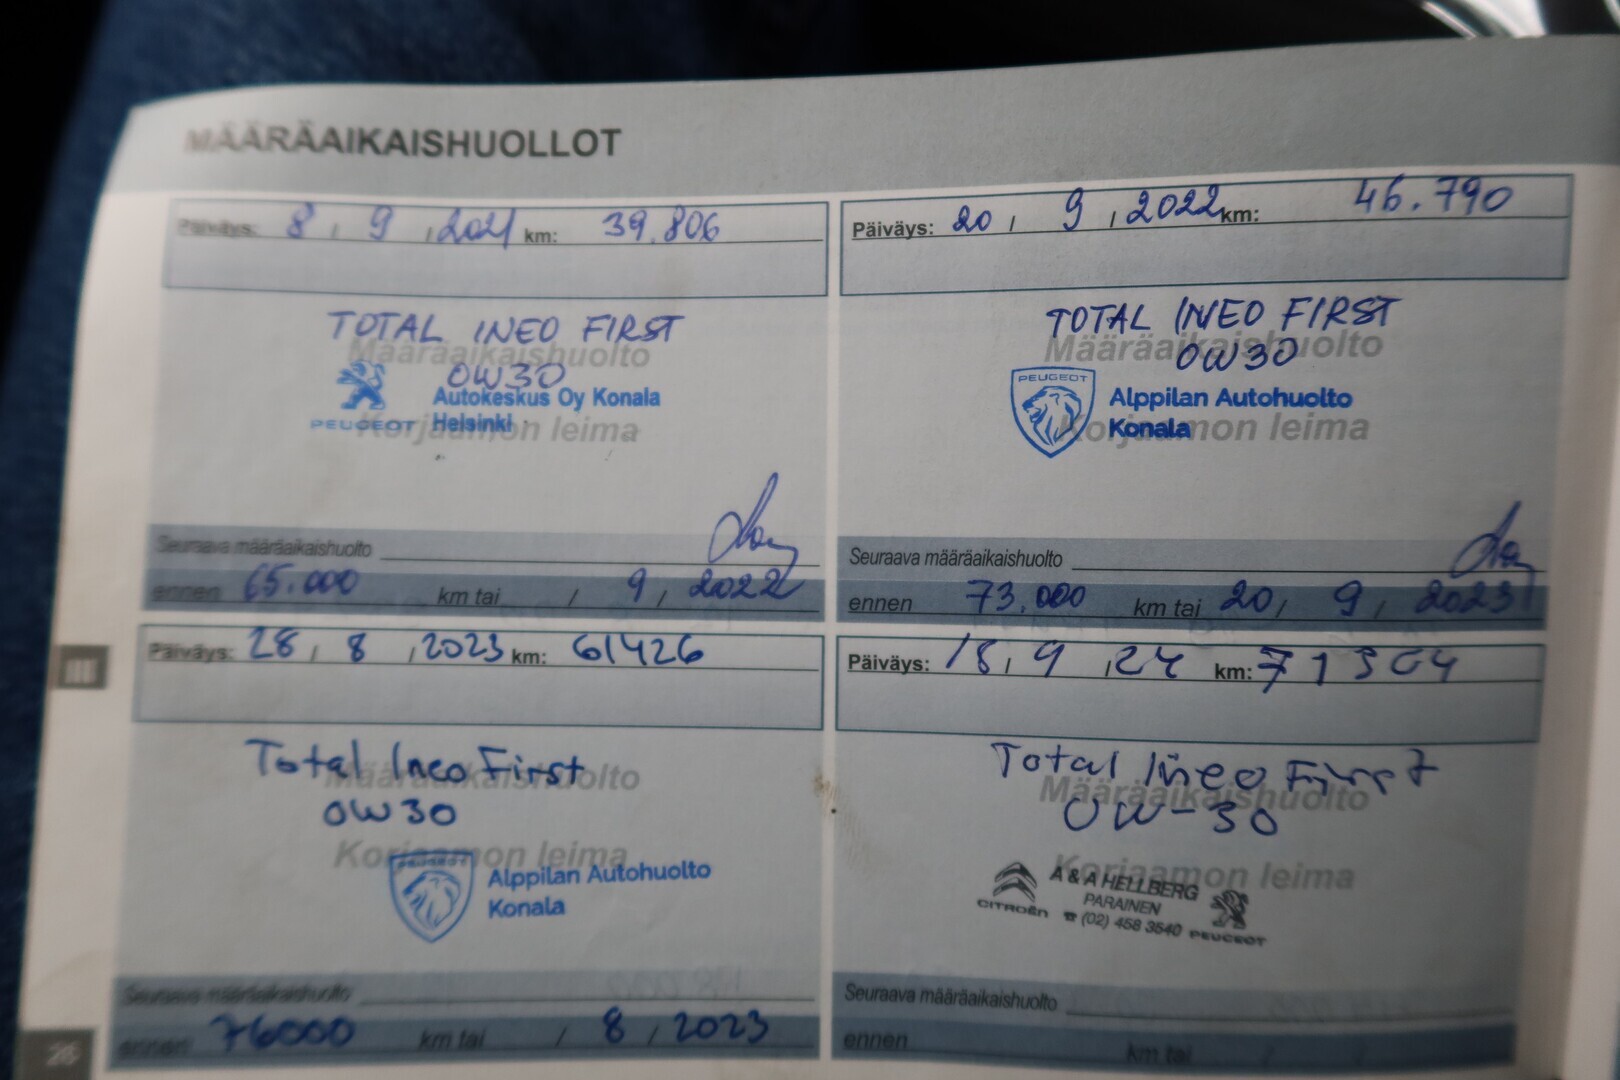 MÄÄRÄAIKAISHUOLLOT
Päiväys: 8 / 9 / 2021 km: 39.806
TOTAL INEO FIRST
Määräaikaishuolto
0W30
PEUGEOT
Autokeskus Oy Konala
Helsinki
Korjaamon leima
Seuraava määräaikaishuolto
ennen 65.000 km tai / 9 / 2022
Päiväys: 20 / 9 / 2022 km: 46.790
TOTAL INEO FIRST
Määräaikaishuolto
0W30
PEUGEOT
Alppilan Autohuolto
Konala
Korjaamon leima
Seuraava määräaikaishuolto
ennen 73.000 km tai 20 / 9 / 2023
III
Päiväys: 28 / 8 / 2023 km: 61426
Total Ineo First
Määräaikaishuolto
0W30
Korjaamon leima
PEUGEOT
Alppilan Autohuolto
Konala
Seuraava määräaikaishuolto
ennen 76000 km tai / 8 / 2023
Päiväys: 18 / 9 / 24 km: 71304
Total Ineo First
Määräaikaishuolto
0W-30
Korjaamon leima
CITROËN
A & A HELLBERG
PARAINEN
☎ (02) 458 3540
PEUGEOT
Seuraava määräaikaishuolto
ennen km tai / /
26